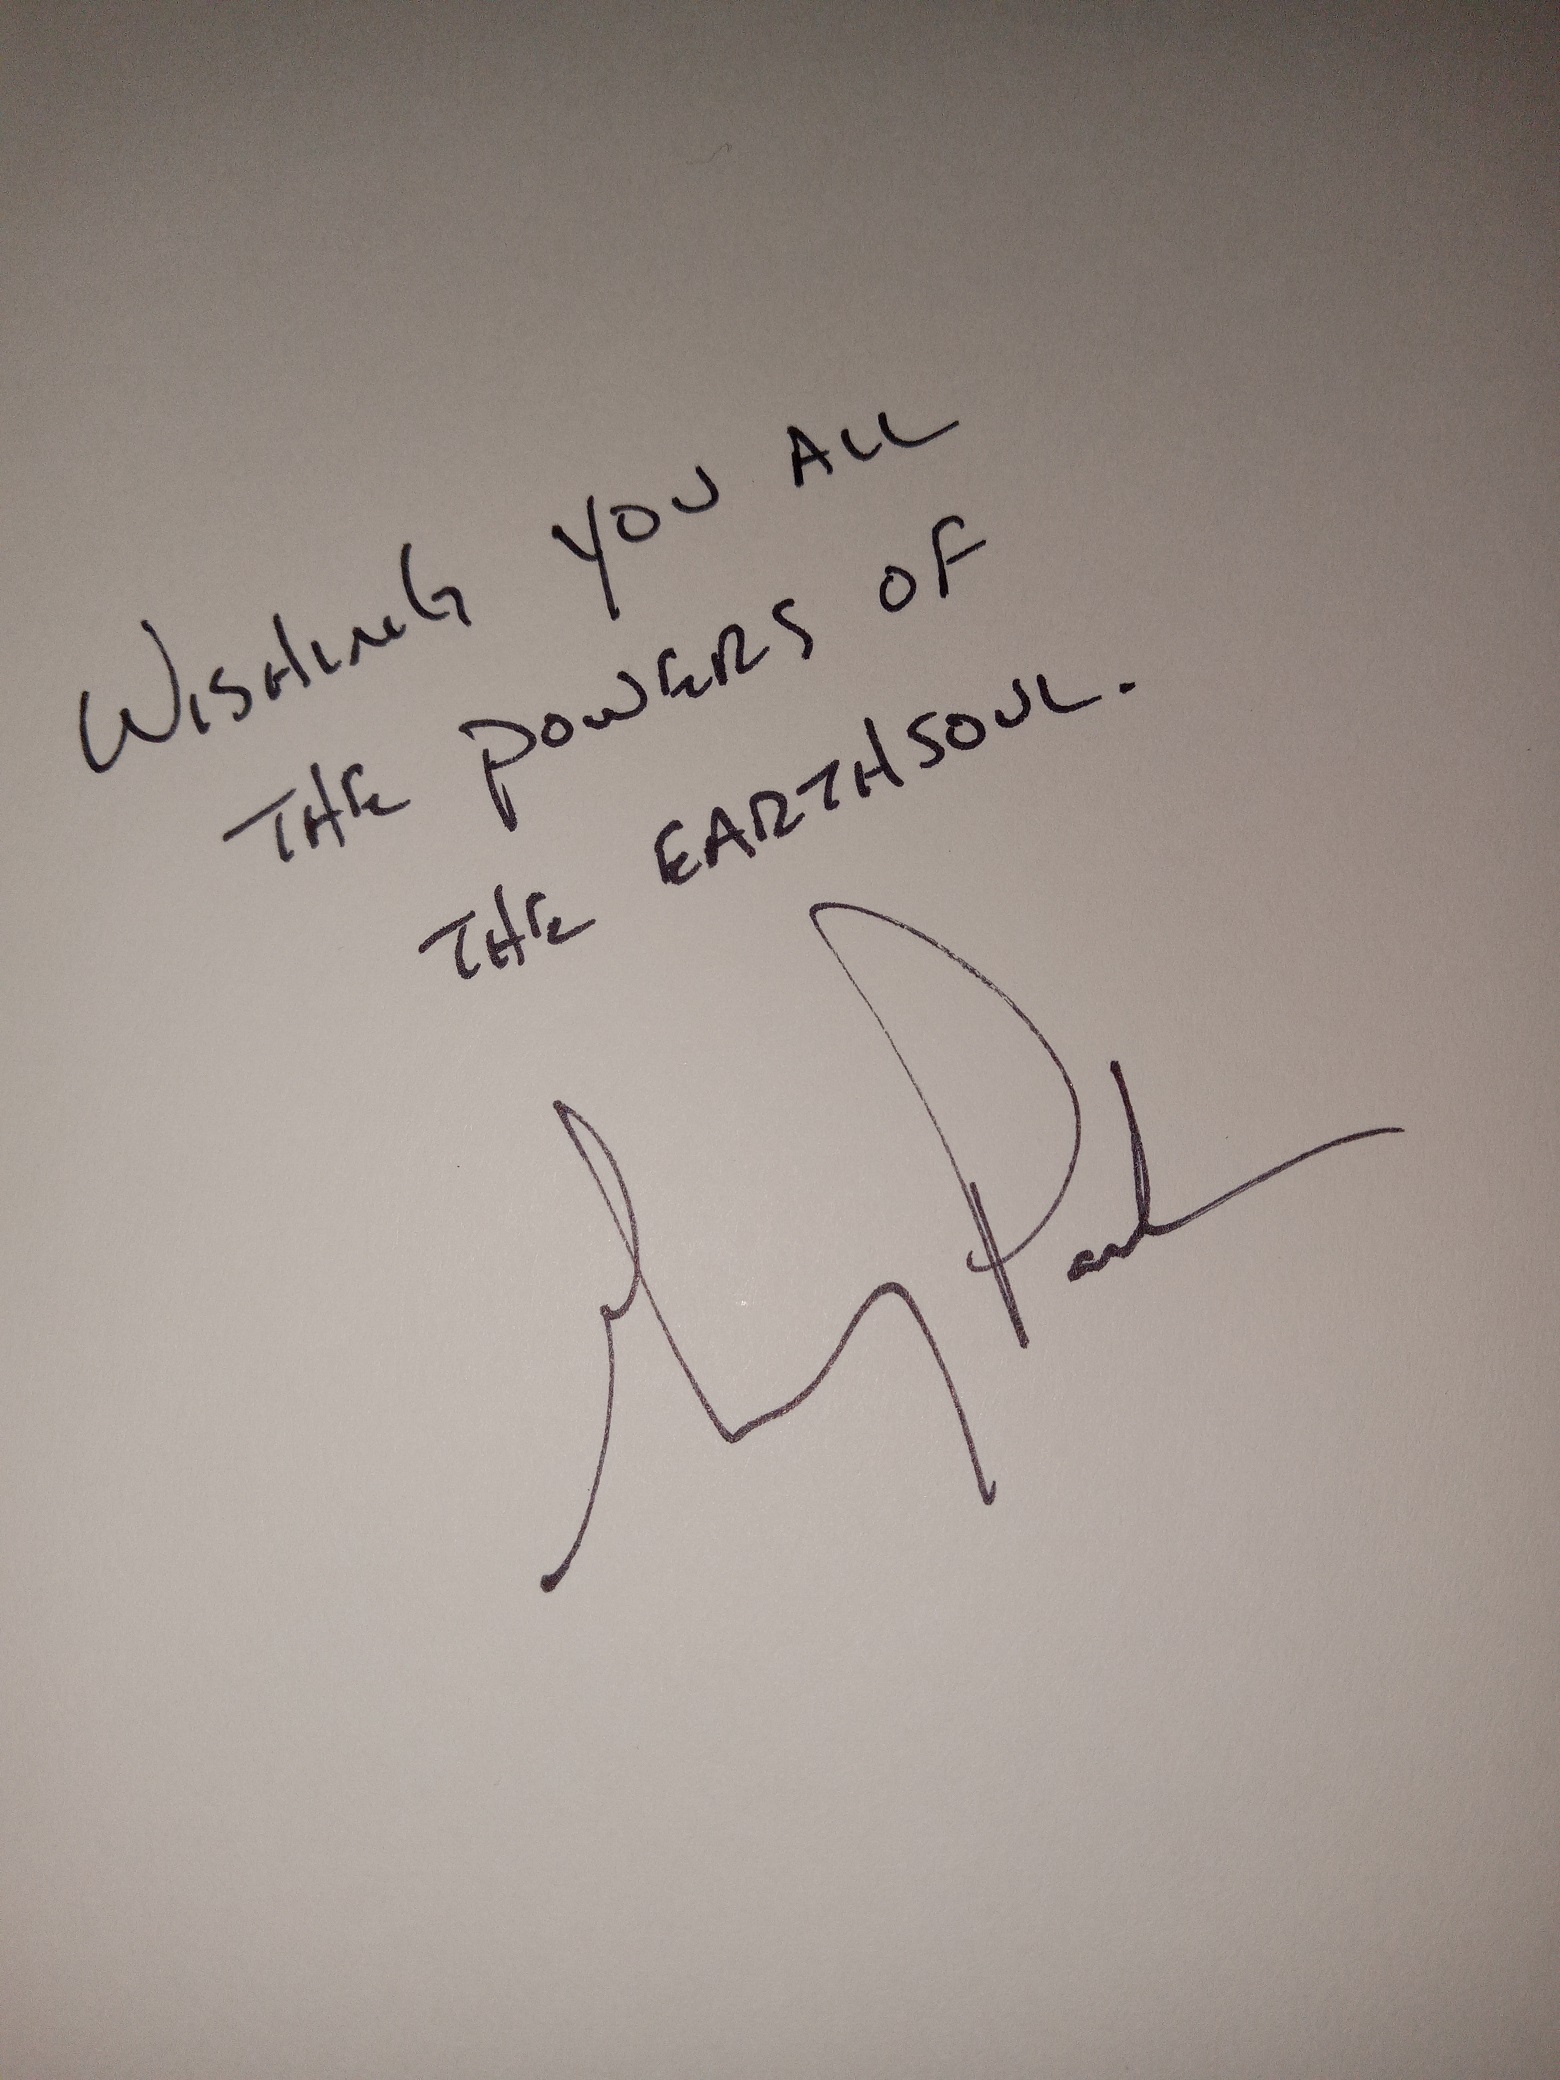 WISHING YOU ALL
THE POWERS OF
THE EARTHSOUL.